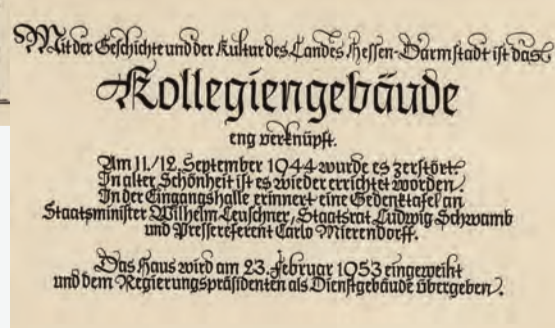 Mit der Geschichte und der Kultur des Landes Hessen-Darmstadt ist das
Kollegiengebäude
eng verknüpft.
Am 11./12. September 1944 wurde es zerstört.
In alter Schönheit ist es wieder errichtet worden.
In der Eingangshalle erinnert eine Gedenktafel an
Staatsminister Wilhelm Leuschner, Staatsrat Ludwig Schwamb
und Pressereferent Carlo Mierendorff.
Das Haus wird am 23. Februar 1953 eingeweiht
und dem Regierungspräsidenten als Dienstgebäude übergeben.